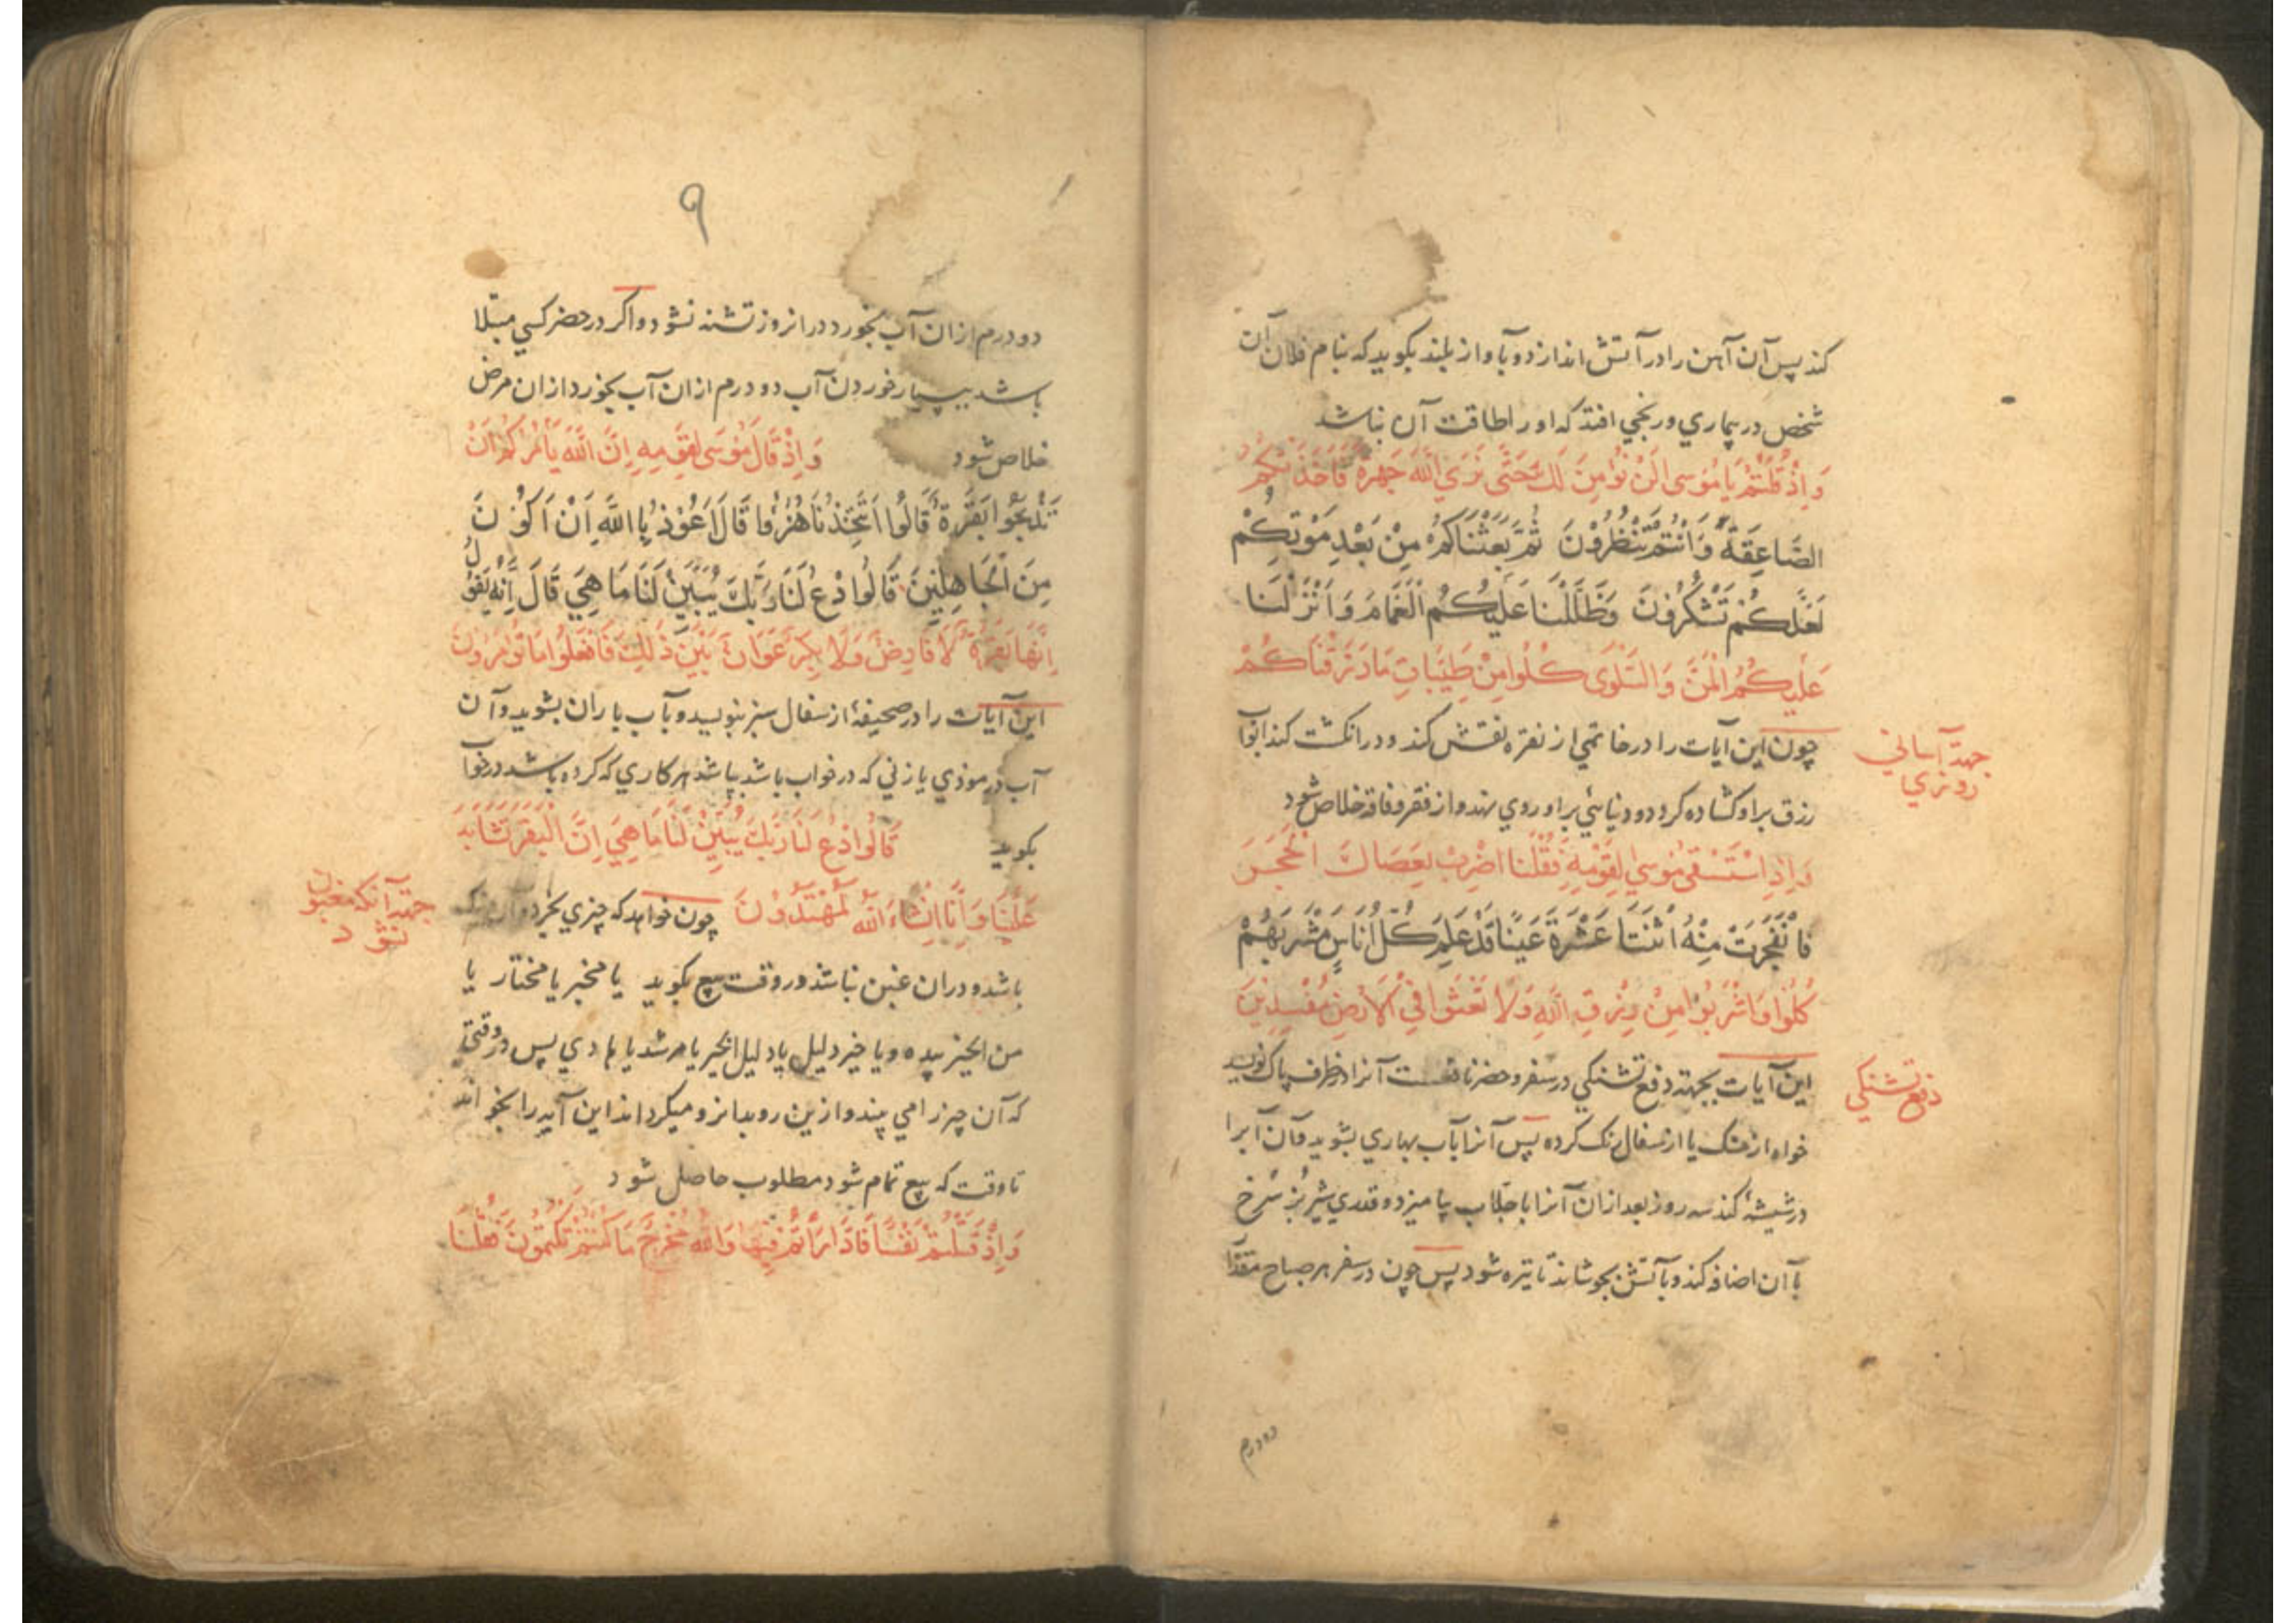 کند پس آن آهن را در آتش اندازد و بآواز بلند بکوید که بنام فلان آن
شخص در بیماري و رنجي افتد که او را طاقت آن نباشد
وَاِذْ قُلْتُمْ يَا مُوسى لَنْ نُؤْمِنَ لَكَ حَتَّى نَرَي اللّٰهَ جَهرةً فَاَخَذَتْكُمُ
الصَّاعِقَةُ وَاَنْتُمْ تَنْظُرُوْنَ ثُمَّ بَعَثْنَاكُمْ مِنْ بَعْدِ مَوْتِكُمْ
لَعَلَّكُمْ تَشْكُرُوْنَ وَظَلَّلْنَا عَلَيْكُمُ الْغَمَامَ وَاَنْزَلْنَا
عَلَيْكُمُ الْمَنَّ وَالسَّلْوَى كُلُوا مِنْ طَيِّبَاتِ مَا رَزَقْنَاكُمْ
چون این آیات را در خاتمي از نقره نقش کند و در انکشت کند ابواب
جهة آساني
روزي
رزق بر او کشاده کردد و دنیا ئي براو روي نهد و از فقر و فاقه خلاص شود
وَاِذِ اسْتَسْقَى مُوسٰي لِقَوْمِهِ فَقُلْنَا اضْرِبْ بِعَصَاكَ الْحَجَرَ
فَانْفَجَرَتْ مِنْهُ اثْنَتَا عَشْرَةَ عَيْنًا قَدْ عَلِمَ كُلُّ اُنَاسٍ مَشْرَبَهُمْ
كُلُوْا وَاشْرَبُوْا مِنْ رِزْقِ اللّٰهِ وَلَا تَعْثَوْا فِي الْاَرْضِ مُفْسِدِيْنَ
این آیات بجهة دفع تشنکي در سفر و حضر نافعست آنرا در ظرف پاک نویسد
دفع تشنکي
خواه از خشک یا از سفال رنک کرده پس آنرا بآب بهاري بشوید و آن آبرا
در شیشهٔ کند سه روز بعد از آن آنرا با جلاب بیامیزد و قدري شیر بز سرخ
بآن اضافه کند و بآتش بجوشاند تا تیره شود پس چون در سفر هر صباح مقدار
دو درم
٩
دو درم از ان آب بخورد در انروز تشنه نشود و اکر در حضر کسي مبتلا
باشد ببسیار خوردن آب دو درم از ان آب بخورد از ان مرض
خلاص شود وَاِذْ قَالَ مُوْسَى لِقَوْمِهِ اِنَّ اللّٰهَ يَأْمُرُكُمْ اَنْ
تَذْبَحُوْا بَقَرَةً قَالُوْا اَتَتَّخِذُنَا هُزُوًا قَالَ اَعُوْذُ بِاللّٰهِ اَنْ اَكُوْنَ
مِنَ الْجَاهِلِيْنَ قَالُوا ادْعُ لَنَا رَبَّكَ يُبَيِّنْ لَنَا مَا هِيَ قَالَ اِنَّهُ يَقُوْلُ
اِنَّهَا بَقَرَةٌ لَا فَارِضٌ وَلَا بِكْرٌ عَوَانٌ بَيْنَ ذٰلِكَ فَافْعَلُوا مَا تُؤْمَرُوْنَ
این آیات را در صحیفهٔ از سفال سبز بنویسد و بآب باران بشوید و آن
آب در موذي یا زني که در خواب باشد بپاشد هر کاري که کرده باشد در خواب
بکوید قَالُوا ادْعُ لَنَا رَبَّكَ يُبَيِّنْ لَنَا مَا هِيَ اِنَّ الْبَقَرَ تَشَابَهَ
عَلَيْنَا وَاِنَّا اِنْشَاءَ اللّٰهُ لَمُهْتَدُوْنَ چون خواهد که چیزي بخرد
جهة آنکه مغبون
نشود
باشد و در ان غبن نباشد در وقت بیع بکوید یا مخبر یا مختار یا
من الخیر بیده و یا خیر دلیل یا دلیل الخیر یا مرشد یا هادي پس در وقتي
که آن چیز را مي بیند و ازین رو بدانرو میکرداند این آیه را بخواند
تا وقت که بیع تمام شود مطلوب حاصل شود
وَاِذْ قَتَلْتُمْ نَفْسًا فَادَّارَأْتُمْ فِيْهَا وَاللّٰهُ مُخْرِجٌ مَا كُنْتُمْ تَكْتُمُوْنَ فَقُلْنَا